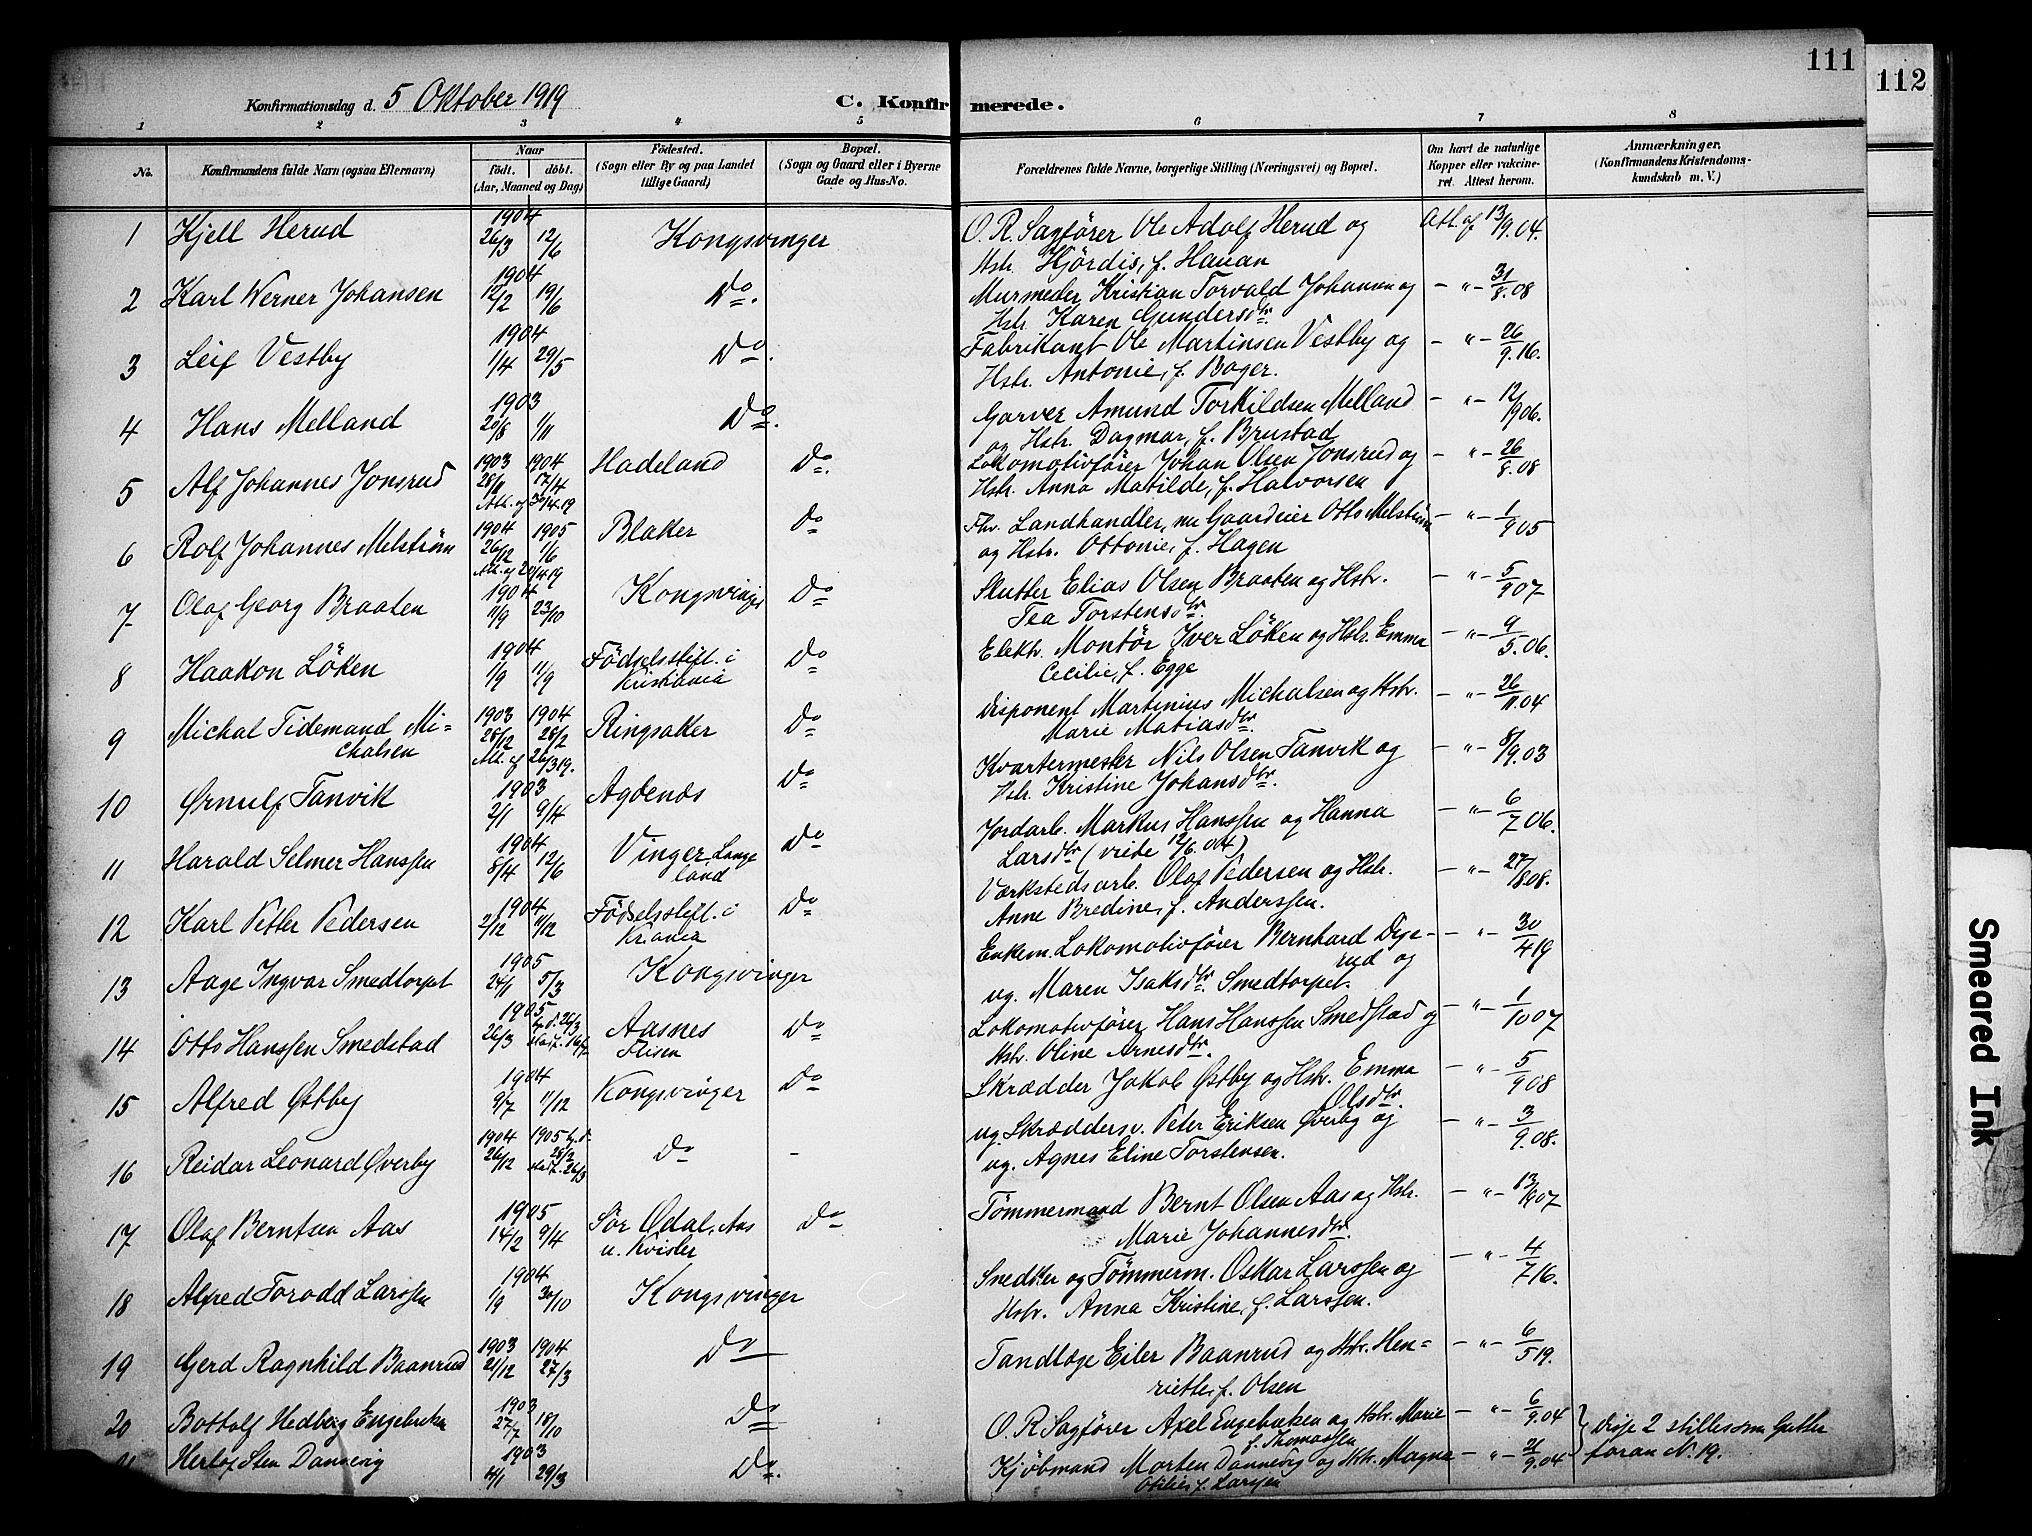 111
112
Konfirmationsdag d. 5 Oktober 1919
C. Konfirmerede.
1 2 3 4 5 6 7 8
No.
Konfirmandens fulde Navn (ogsaa Efternavn)
Naar
født. døbt.
(Aar, Maaned og Dag)
Fødested.
(Sogn eller By og paa Landet
tillige Gaard)
Bopæl.
(Sogn og Gaard eller i Byerne
Gade og Hus-No.
Forældrenes fulde Navne, borgerlige Stilling (Næringsvei) og Bopæl.
Om havt de naturlige
Kopper eller vakcine-
ret. Attest herom.
Anmærkninger.
(Konfirmandens Kristendoms-
kundskab m. V.)
1 Kjell Herud 1904 26/3 12/6 Kongsvinger O. R. Sagfører Ole Adolf Herud og Att. af 13/9.04.
Hstr. Hjördis, f. Hauan
2 Karl Werner Johansen 1904 12/2 19/6 Do. Murmester Kristian Torvald Johansen og - " - 31/8.08
Hstr. Karen Gundersdtr.
3 Leif Vestby 1904 1/4 29/5 Do. Fabrikant Ole Martinsen Vestby og - " - 26/9.16.
Hstr. Antonie, f. Bager.
4 Hans Melland 1903 20/8 1/11 Do. Garver Amund Torkildsen Melland - " - 12/9 06.
og Hstr. Dagmar, f. Brustad
5 Alf Johannes Jonsrud 1903 28/11 1904 17/4 Hadeland Do. Lokomotivfører Johan Olsen Jonsrud og - " - 26/8.08
Att. af 30/4.19 Hstr. Anna Matilde, f. Halvorsen
6 Rolf Johannes Melström 1904 26/12 1905 1/6 Blaker Do Fhv. Landhandler, nu Gaardeier Otto Melström - " - 1/9 05
Att. af 20/4.19 og Hstr. Ottonie, f. Hagen
7 Olaf Georg Braaten 1904 11/9 23/10 Kongsvinger Do Slutter Elias Olsen Braaten og Hstr. - " - 5/9 07
Tea Torstensdtr.
8 Haakon Löken 1904 1/9 11/9 Födselsstift. i Do Elektr. Montör Iver Löken og Hstr. Emma - " - 9/5.06.
Kristiania Cecilie, f. Egge
9 Michal Tidemand Mi= 1903 28/12 1904 28/2 Ringsaker Do Disponent Martinius Michalsen og Hstr. - " - 26/11.04
chalsen Att. af 26/3 19. Marie Matiasdtr.
10 Ørnulf Tanvik 1903 2/1 9/4 Agdenes Do Kvartermester Nils Olsen Tanvik og - " - 8/9.03
Hstr. Kristine Johansdtr.
11 Harald Selmer Hanssen 1904 8/4 12/6 Vinger Lange Do Jordarb. Markus Hanssen og Hanna - " - 6/7 06.
land Larsdtr (viede 12/6.04)
12 Karl Petter Pedersen 1904 2/12 11/12 Födselsstift. i Do Værkstedsarb. Olaf Pedersen og Hstr. - " - 27/8 08.
Kr.ania Anne Bredine, f. Anderssen.
13 Aage Ingvar Smedtorpet 1905 24/1 5/3 Kongsvinger Enkem. Lokomotivfører Bernhard Dige- - " - 30/4 19
rud og
ug. Maren Isaksdtr. Smedtorpet.
14 Otto Hanssen Smedstad 1905 26/3 Aasnes Do Lokomotivfører Hans Hanssen Smedstad og - " - 1/10 07
Flisen Hstr. Oline Arnesdtr.
15 Alfred Østby 1904 9/7 11/12 Kongsvinger Do Skrædder Jakob Østby og Hstr. Emma - " - 5/9 08
Olsdtr.
16 Reidar Leonard Øverby 1904 26/12 1905 Do - ug. Skræddersv. Peter Eriksen Øverby og - " - 3/9.08.
ug. Agnes Eline Torstensen.
17 Olaf Berntsen Aas 1905 14/2 9/4 Sör Ødal, Aas Do Tömmermand Bernt Olsen Aas og Hstr. - " - 13/9 07
u. Kvisler Marie Johannesdtr.
18 Alfred Torodd Larssen 1904 1/9 30/10 Kongsvinger Snedker og Tömmerm. Oskar Larssen og - " - 4/7 16.
Hstr. Anna Kristine, f. Larssen.
19 Gerd Ragnhild Baanrud 1903 21/12 1904 27/3 Do Tandlæge Eiler Baanrud og Hstr. Hen= - " - 6/5 19.
riette, f. Olsen
20 Bottolf Hedberg Engebretsen 1903 27/7 18/10 Do O. R. Sagfører Axel Engebretsen og Hstr. Marie - " - 6/9.04 Disse 2 stilles som Gutter
f. Thomassen
Herlof Sten Dannevig 1903 4/1 29/3 Do. Kjöbmand Morten Dannevig og Hstr. Magna - " - 21/9.04 foran No. 19.
Otilie, f. Larsen
Smeared Ink